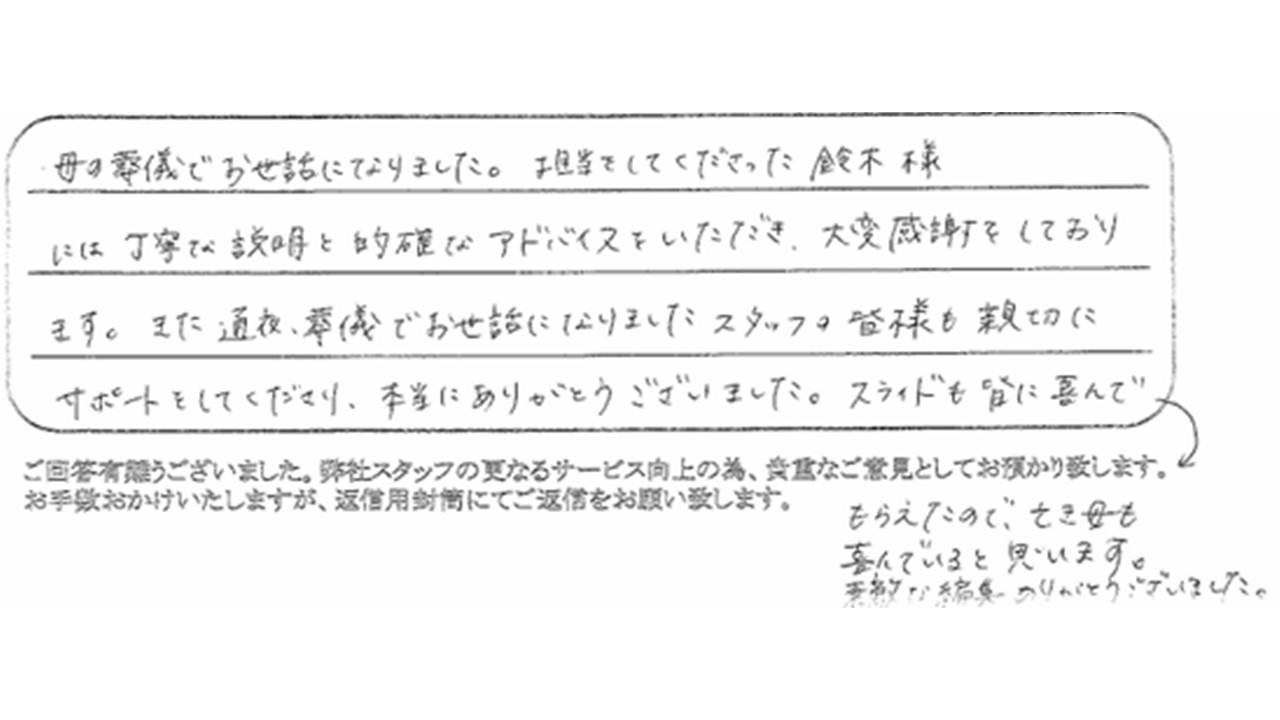 母の葬儀でお世話になりました。担当をしてくださった鈴木様
には丁寧な説明と的確なアドバイスをいただき、大変感謝をしており
ます。また通夜、葬儀でお世話になりましたスタッフの皆様も親切に
サポートをしてくださり、本当にありがとうございました。スライドも皆に喜んで
ご回答有難うございました。弊社スタッフの更なるサービス向上の為、貴重なご意見としてお預かり致します。
お手数おかけいたしますが、返信用封筒にてご返信をお願い致します。
もらえたので、亡き母も
喜んでいると思います。
素敵な編集ありがとうございました。